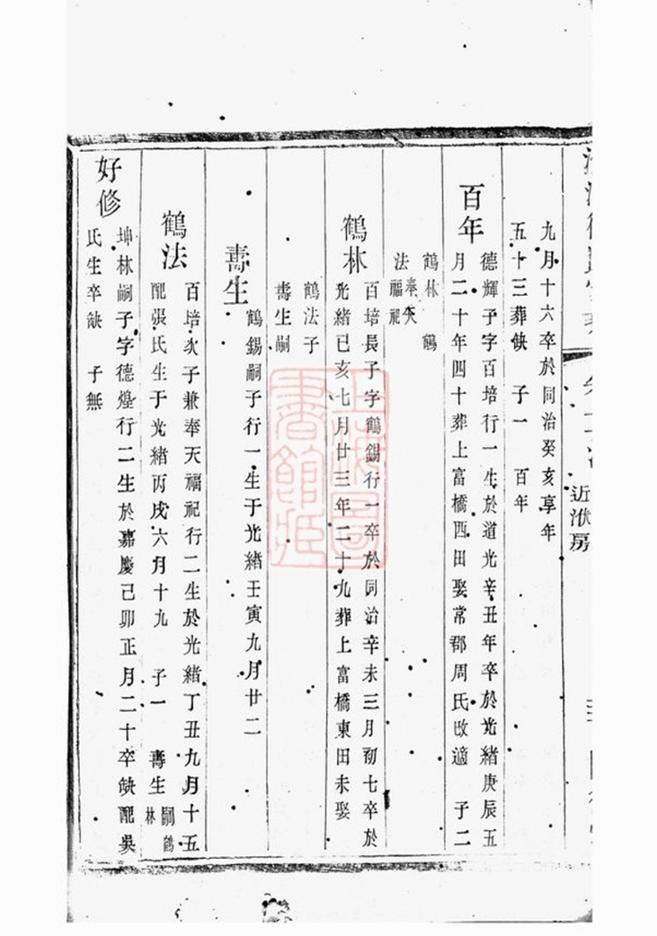 九月十六卒於同治癸亥享年
五十三葬缺 子一 百年
百年
德輝子字百培行一生於道光辛丑年卒於光緒庚辰五
月二十年四十葬上富橋西田娶常郡周氏改適 子二
鶴林 鶴
法奉天福祀
鶴林
百培長子字鶴錫行一卒於同治辛未三月初七卒於
光緒己亥七月廿三年二十九葬上富橋東田未娶
鶴法子
壽生嗣
壽生
鶴錫嗣子行一生于光緒壬寅九月廿二
鶴法
百培次子兼奉天福祀行二生於光緒丁丑九月十五
配張氏生于光緒丙戌六月十九 子一 壽生嗣鶴林
好修
坤林嗣子字德煌行二生於嘉慶己卯正月二十卒缺配吳
氏生卒缺 子無
近洑房
上海圖書館藏